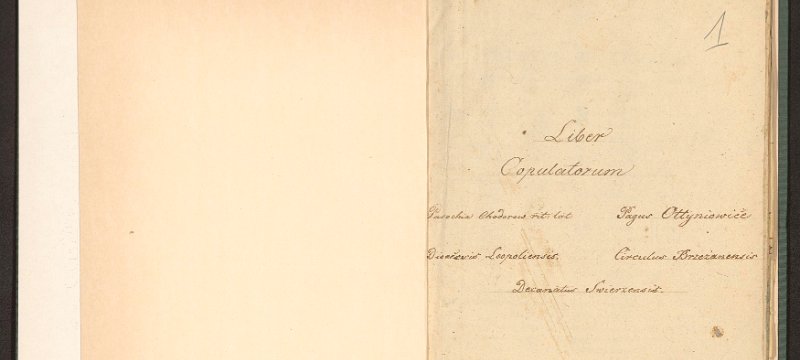 1
Liber
Copulatorum
Parochia Chodorow rit: lat Pagus Ottyniowice
Dioecesis Leopoliensis. Circulus Brzezanensis
Decanatus Swierzensis.